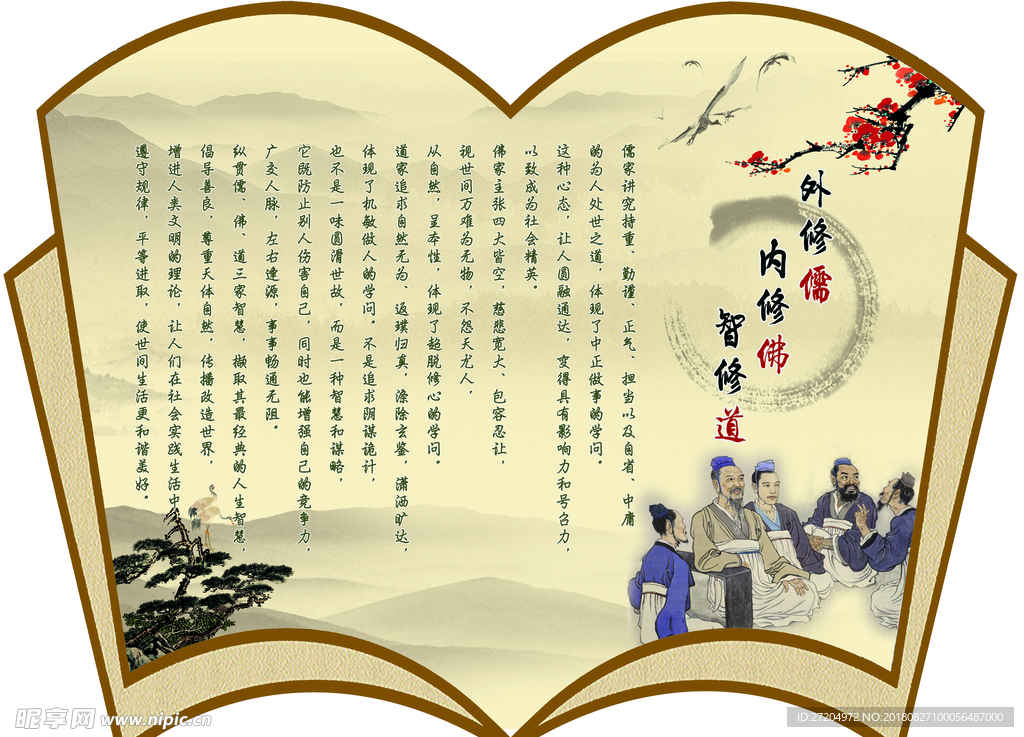 外修儒
内修佛
智修道
儒家讲究持重、勤谨、正气、担当以及自省、中庸
的为人处世之道，体现了中正做事的学问。
这种心态，让人圆融通达，变得具有影响力和号召力，
以致成为社会精英。
佛家主张四大皆空，慈悲宽大、包容忍让，
视世间万难为无物，不怨天尤人，
从自然，呈本性，体现了超脱修心的学问。
道家追求自然无为、返璞归真，涤除玄鉴，潇洒旷达，
体现了机敏做人的学问。不是追求阴谋诡计，
也不是一味圆滑世故，而是一种智慧和谋略，
它既防止别人伤害自己，同时也能增强自己的竞争力，
广交人脉，左右逢源，事事畅通无阻。
纵贯儒、佛、道三家智慧，撷取其最经典的人生智慧，
倡导善良，尊重天体自然，传播改造世界，
增进人类文明的理论，让人们在社会实践生活中
遵守规律，平等进取，使世间生活更和谐美好。
昵享网 www.nipic.cn
ID:27204972 NO:20180827100056487000